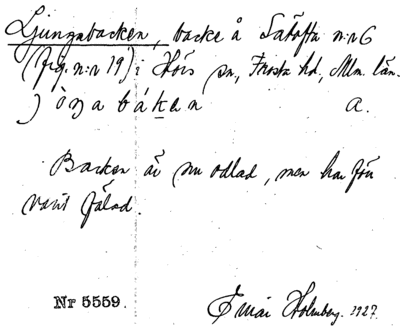 Ljungabacken, backe å Sätofta n:r 6
(frg. n:r 19) i Hörs sn, Frosta hd, Mlm. län.
a.
Backen är nu odlad, men har förr
varit fälad.
Nr 5559.
Emar Holmberg. 1927.